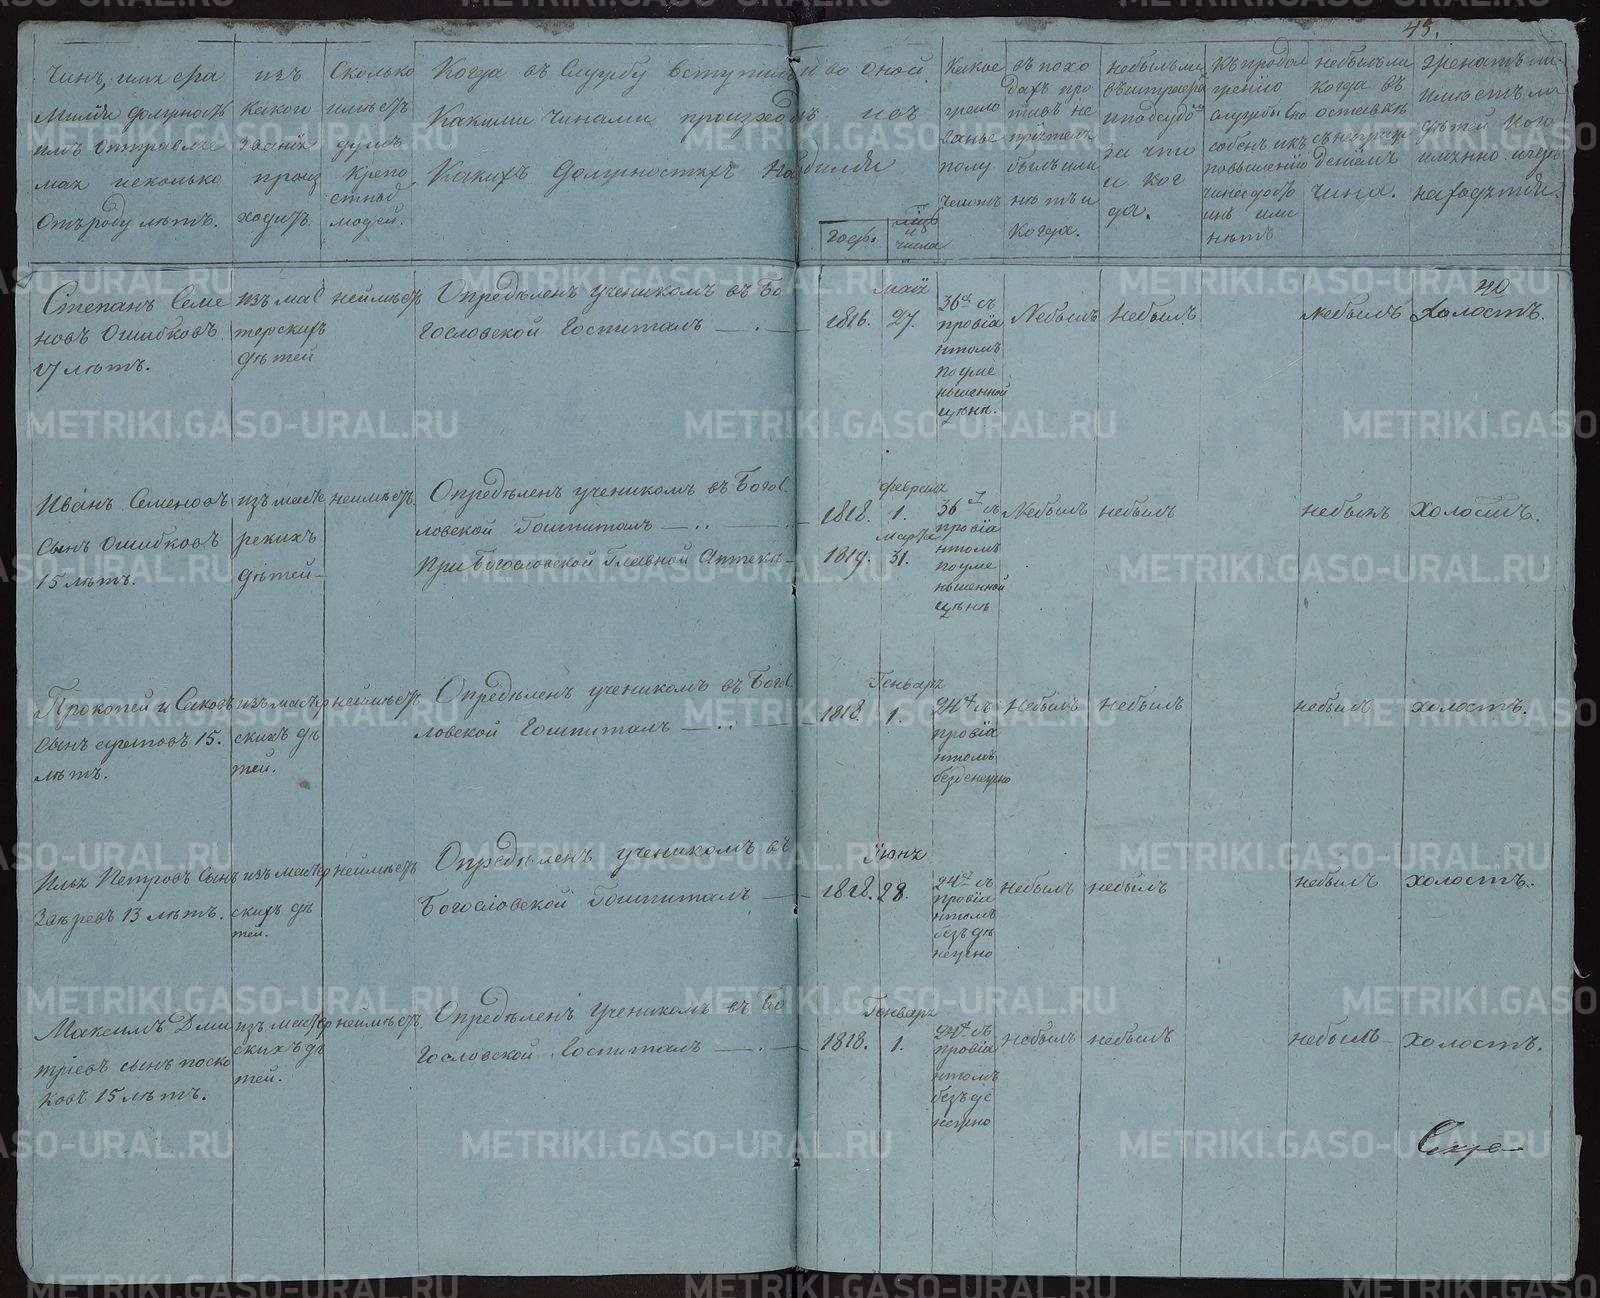 45.
Чинъ, имя фа
милія должность
имъ отправляе
мая и сколько
отъ роду лѣтъ.
изъ
какого
званія
проис
ходитъ
Сколько
имѣетъ
душъ
крѣпо
стныхъ
людей.
Когда въ службу вступилъ и во оной
какими чинами происходилъ и въ
какихъ должностяхъ находился
годы.
мцы
и
числа
Какое
жало
ванье
полу
чаетъ
въ похо
дахъ про
тивъ не
пріятеля
былъ или
нѣтъ и
когда.
небылъ ли
въ штрафа
и подсудѣ
за что
и ког
да.
къ продол
женію
службы спо
собенъ и къ
повышенію
чина достоі
инъ или
нѣтъ
небылъ ли
когда въ
отставкѣ
съ награж
деніемъ
чина.
женатъ ли
имѣетъ ли
дѣтей кого
имянно и гдѣ
находятся.
40
Степанъ Семе
новъ Ошибковъ
17 лѣтъ.
изъ мас
терскихъ
дѣтей
неимѣетъ
Опредѣленъ ученикомъ въ Бо
гословской Госпиталь
1816.
май
27.
36 съ
провіа
нтомъ
по уме
ньшенной
цѣнѣ.
Небылъ
небылъ
небылъ
Холостъ.
Иванъ Семеновъ
сынъ Ошибковъ
15 лѣтъ.
изъ масте
рскихъ
дѣтей
неимѣетъ
Опредѣленъ ученикомъ въ Богос
ловской Гошпиталь
При Богословской Главной Аптекѣ
1818.
февраля
1.
1819.
марта
31.
36 съ
провіа
нтомъ
по уме
ньшенной
цѣнѣ
Небылъ
небылъ
небылъ
Холостъ.
Прокопей Исаковъ
сынъ 15.
лѣтъ.
изъ мастер
скихъ дѣ
тей.
неимѣетъ
Опредѣленъ ученикомъ въ Богос
ловской Гошпиталь
1818.
Генваря
1.
24 съ
провіа
нтомъ
безденежно
Небылъ
небылъ
небылъ
холостъ.
Илья Петровъ сынъ
13 лѣтъ.
изъ мастер
скихъ дѣ
тей.
неимѣетъ
Опредѣленъ ученикомъ въ
Богословской Гошпиталь
1818.
Іюня
28.
24 съ
провіа
нтомъ
безъ де
нежно
небылъ
небылъ
небылъ
холостъ.
Максимъ Дми
тріевъ сынъ Поско
ковъ 15 лѣтъ.
изъ мастер
скихъ дѣ
тей.
неимѣетъ
Опредѣленъ ученикомъ въ Бо
гословской Госпиталь
1818.
Генваря
1.
24 съ
провіа
нтомъ
безъ де
нежно
небылъ
небылъ
небылъ
холостъ.
METRIKI.GASO-URAL.RU